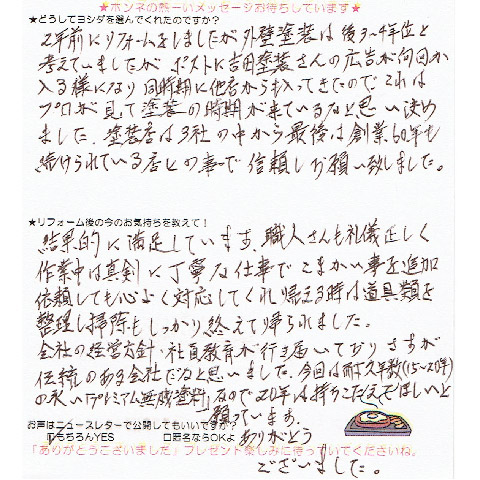 ★ホンネの熱ーいメッセージお待ちしています★
★どうしてヨシダを選んでくれたのですか？
2年前にリフォームをしましたが外壁塗装は後3〜4年位と
考えていましたが ポストに吉田塗装さんの広告が何回か
入る様になり 同時期に他店からも入ってきたので これは
プロが見て塗装の時期が来ているなと思い決め
ました。塗装店は3社の中から最後は創業60年も
続けられている店との事で信頼しお願い致しました。
★リフォーム後の今のお気持ちを教えて！
結果的に満足しています。職人さんも礼儀正しく
作業中は真剣に丁寧な仕事でこまかい事を追加
依頼しても心よく対応してくれ帰える時は道具類を
整理し掃除もしっかり終えて帰られました。
会社の経営方針・社員教育が行き届いておりさすが
伝統のある会社だなと思いました。今回は耐久年数(15〜20年)
の永い「プレミアム無機塗料」なので20年は持ちこたえてほしいと
願っています。
お声はニュースレターで公開してもいいですか？
☑もちろんYES 口匿名ならOKよ
ありがとう
「ありがとうございました」プレゼント楽しみに待っていてくださいね。
ございました。